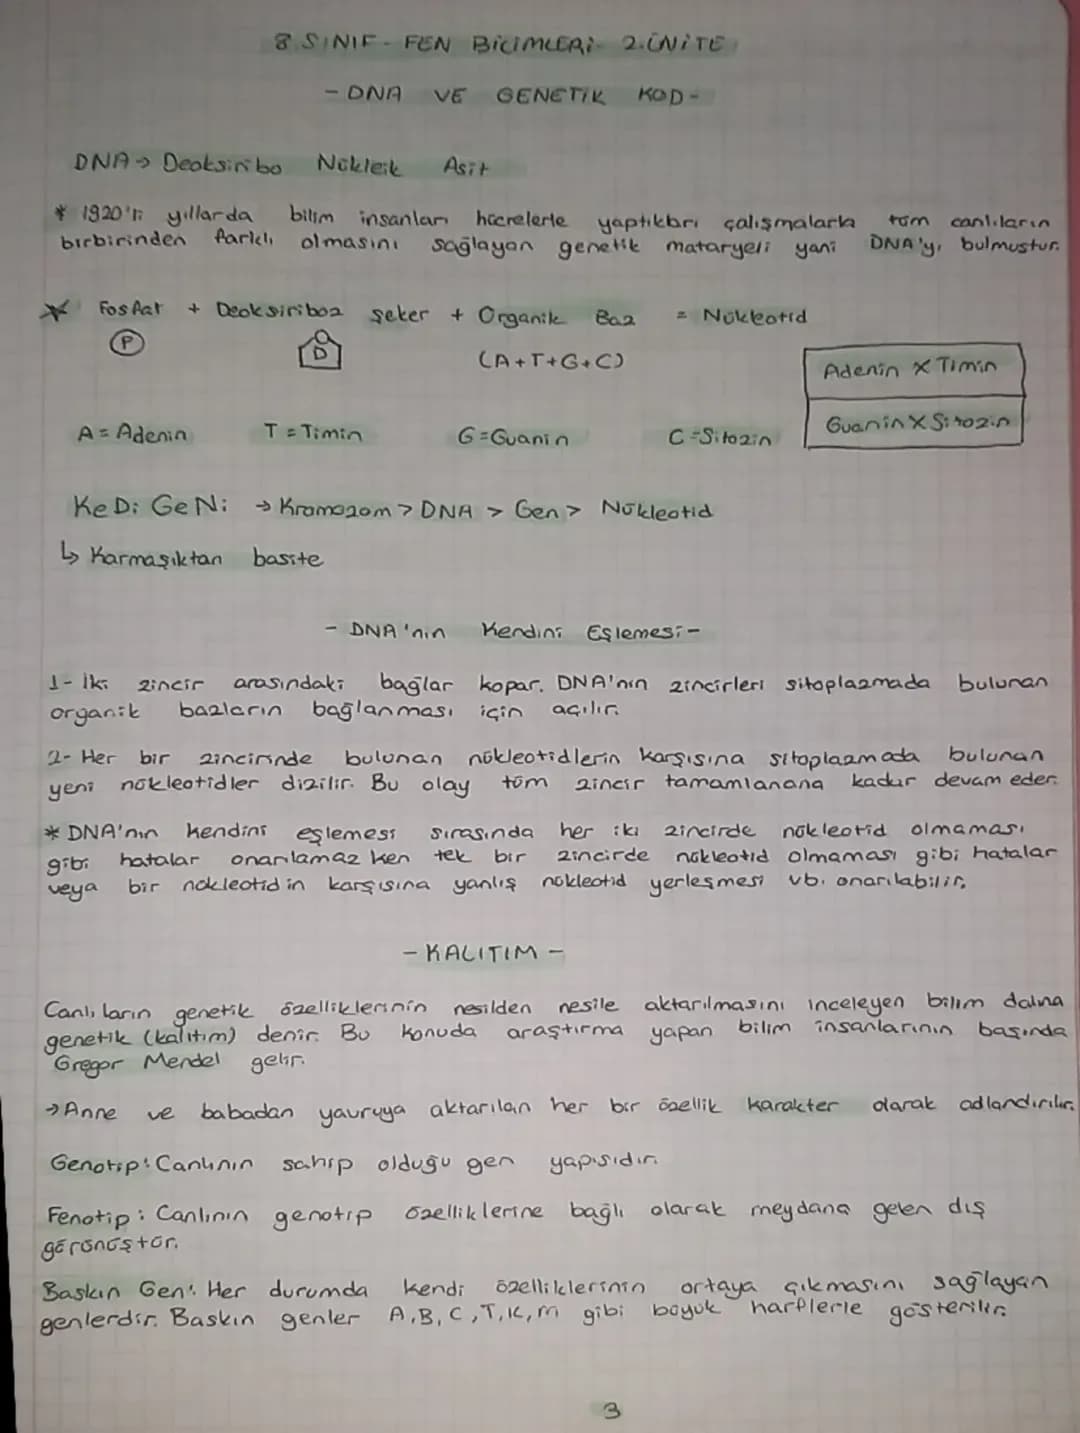 8.SINIF - FEN BİLİMLERİ - 2.ÜNİTE
- DNA VE GENETİK KOD -
DNA → Deoksiribo Nükleik Asit
* 1920'li yıllarda bilim insanları hücrelerle yaptıkları çalışmalarla tüm canlıların
birbirinden farklı olmasını sağlayan genetik mataryeli yani DNA'yı bulmuştur.
* Fosfat + Deoksiriboz şeker + Organik Baz = Nükleotid
P D (A+T+G+C)
Adenin X Timin
Guanin X Sitozin
A = Adenin T = Timin G = Guanin C = Sitozin
KeDi GeNi → Kromozom > DNA > Gen > Nükleotid
↳ Karmaşıktan basite
- DNA'nın Kendini Eşlemesi -
1- İki zincir arasındaki bağlar kopar. DNA'nın zincirleri sitoplazmada bulunan
organik bazların bağlanması için açılır.
2- Her bir zincirinde bulunan nükleotidlerin karşısına sitoplazmada bulunan
yeni nükleotidler dizilir. Bu olay tüm zincir tamamlanana kadar devam eder.
* DNA'nın kendini eşlemesi sırasında her iki zincirde nükleotid olmaması
gibi hatalar onarılamaz ken tek bir zincirde nükleotid olmaması gibi hatalar
veya bir nükleotidin karşısına yanlış nükleotid yerleşmesi vb. onarılabilir.
- KALITIM -
Canlıların genetik özelliklerinin nesilden nesile aktarılmasını inceleyen bilim dalına
genetik (kalıtım) denir. Bu konuda araştırma yapan bilim insanlarının başında
Gregor Mendel gelir.
→ Anne ve babadan yavruya aktarılan her bir özellik karakter olarak adlandırılır.
Genotip: Canlının sahip olduğu gen yapısıdır.
Fenotip: Canlının genotip özelliklerine bağlı olarak meydana gelen dış
görünüştür.
Baskın Gen: Her durumda kendi özelliklerinin ortaya çıkmasını sağlayan
genlerdir. Baskın genler A,B,C,T,K,M gibi büyük harflerle gösterilir.
3